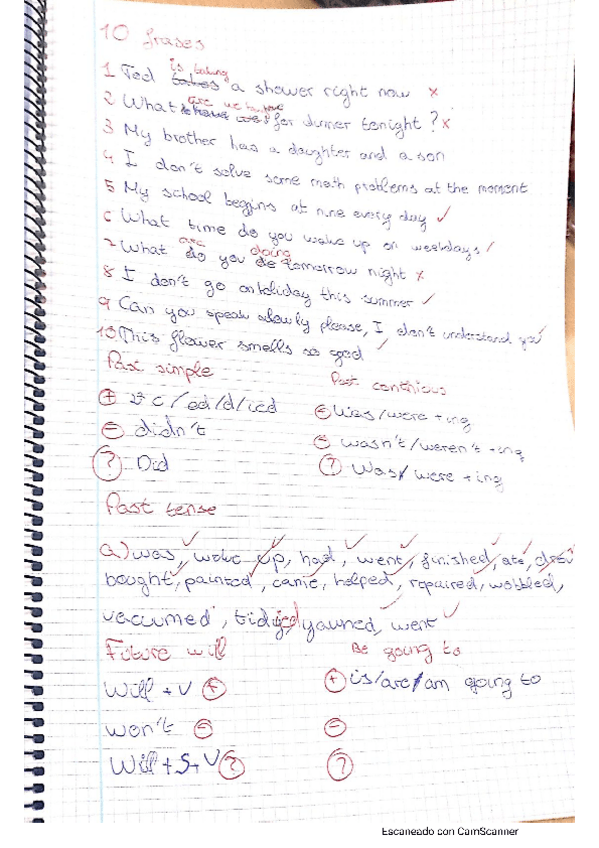 10 frases
is taking
1 Ted takes a shower right now x
are we
2 What for dinner tonight? x
3 My brother has a daughter and a son
4 I don't solve some math problems at the moment
5 My school begins at nine every day ✓
6 What time do you wake up on weekdays /
are doing
7 What do you do tomorrow night x
8 I don't go on holiday this summer ✓
9 Can you speak slowly please, I don't understand you
10 This flower smells so good ✓
Past simple
Past continious
+ 2ª c / ed/d/ied
was/were + ing
- didn't
- wasn't/weren't + ing
? Did
? Was/were + ing
Past tense
a) was, woke up, had, went, finished, ate,
bought, painted, came, helped, repaired, wobbled,
vacuumed, tidied, yawned, went
Future will
Be going to
Will + V +
+ is/are/am going to
won't -
-
Will + S + V ?
?
Escaneado con CamScanner